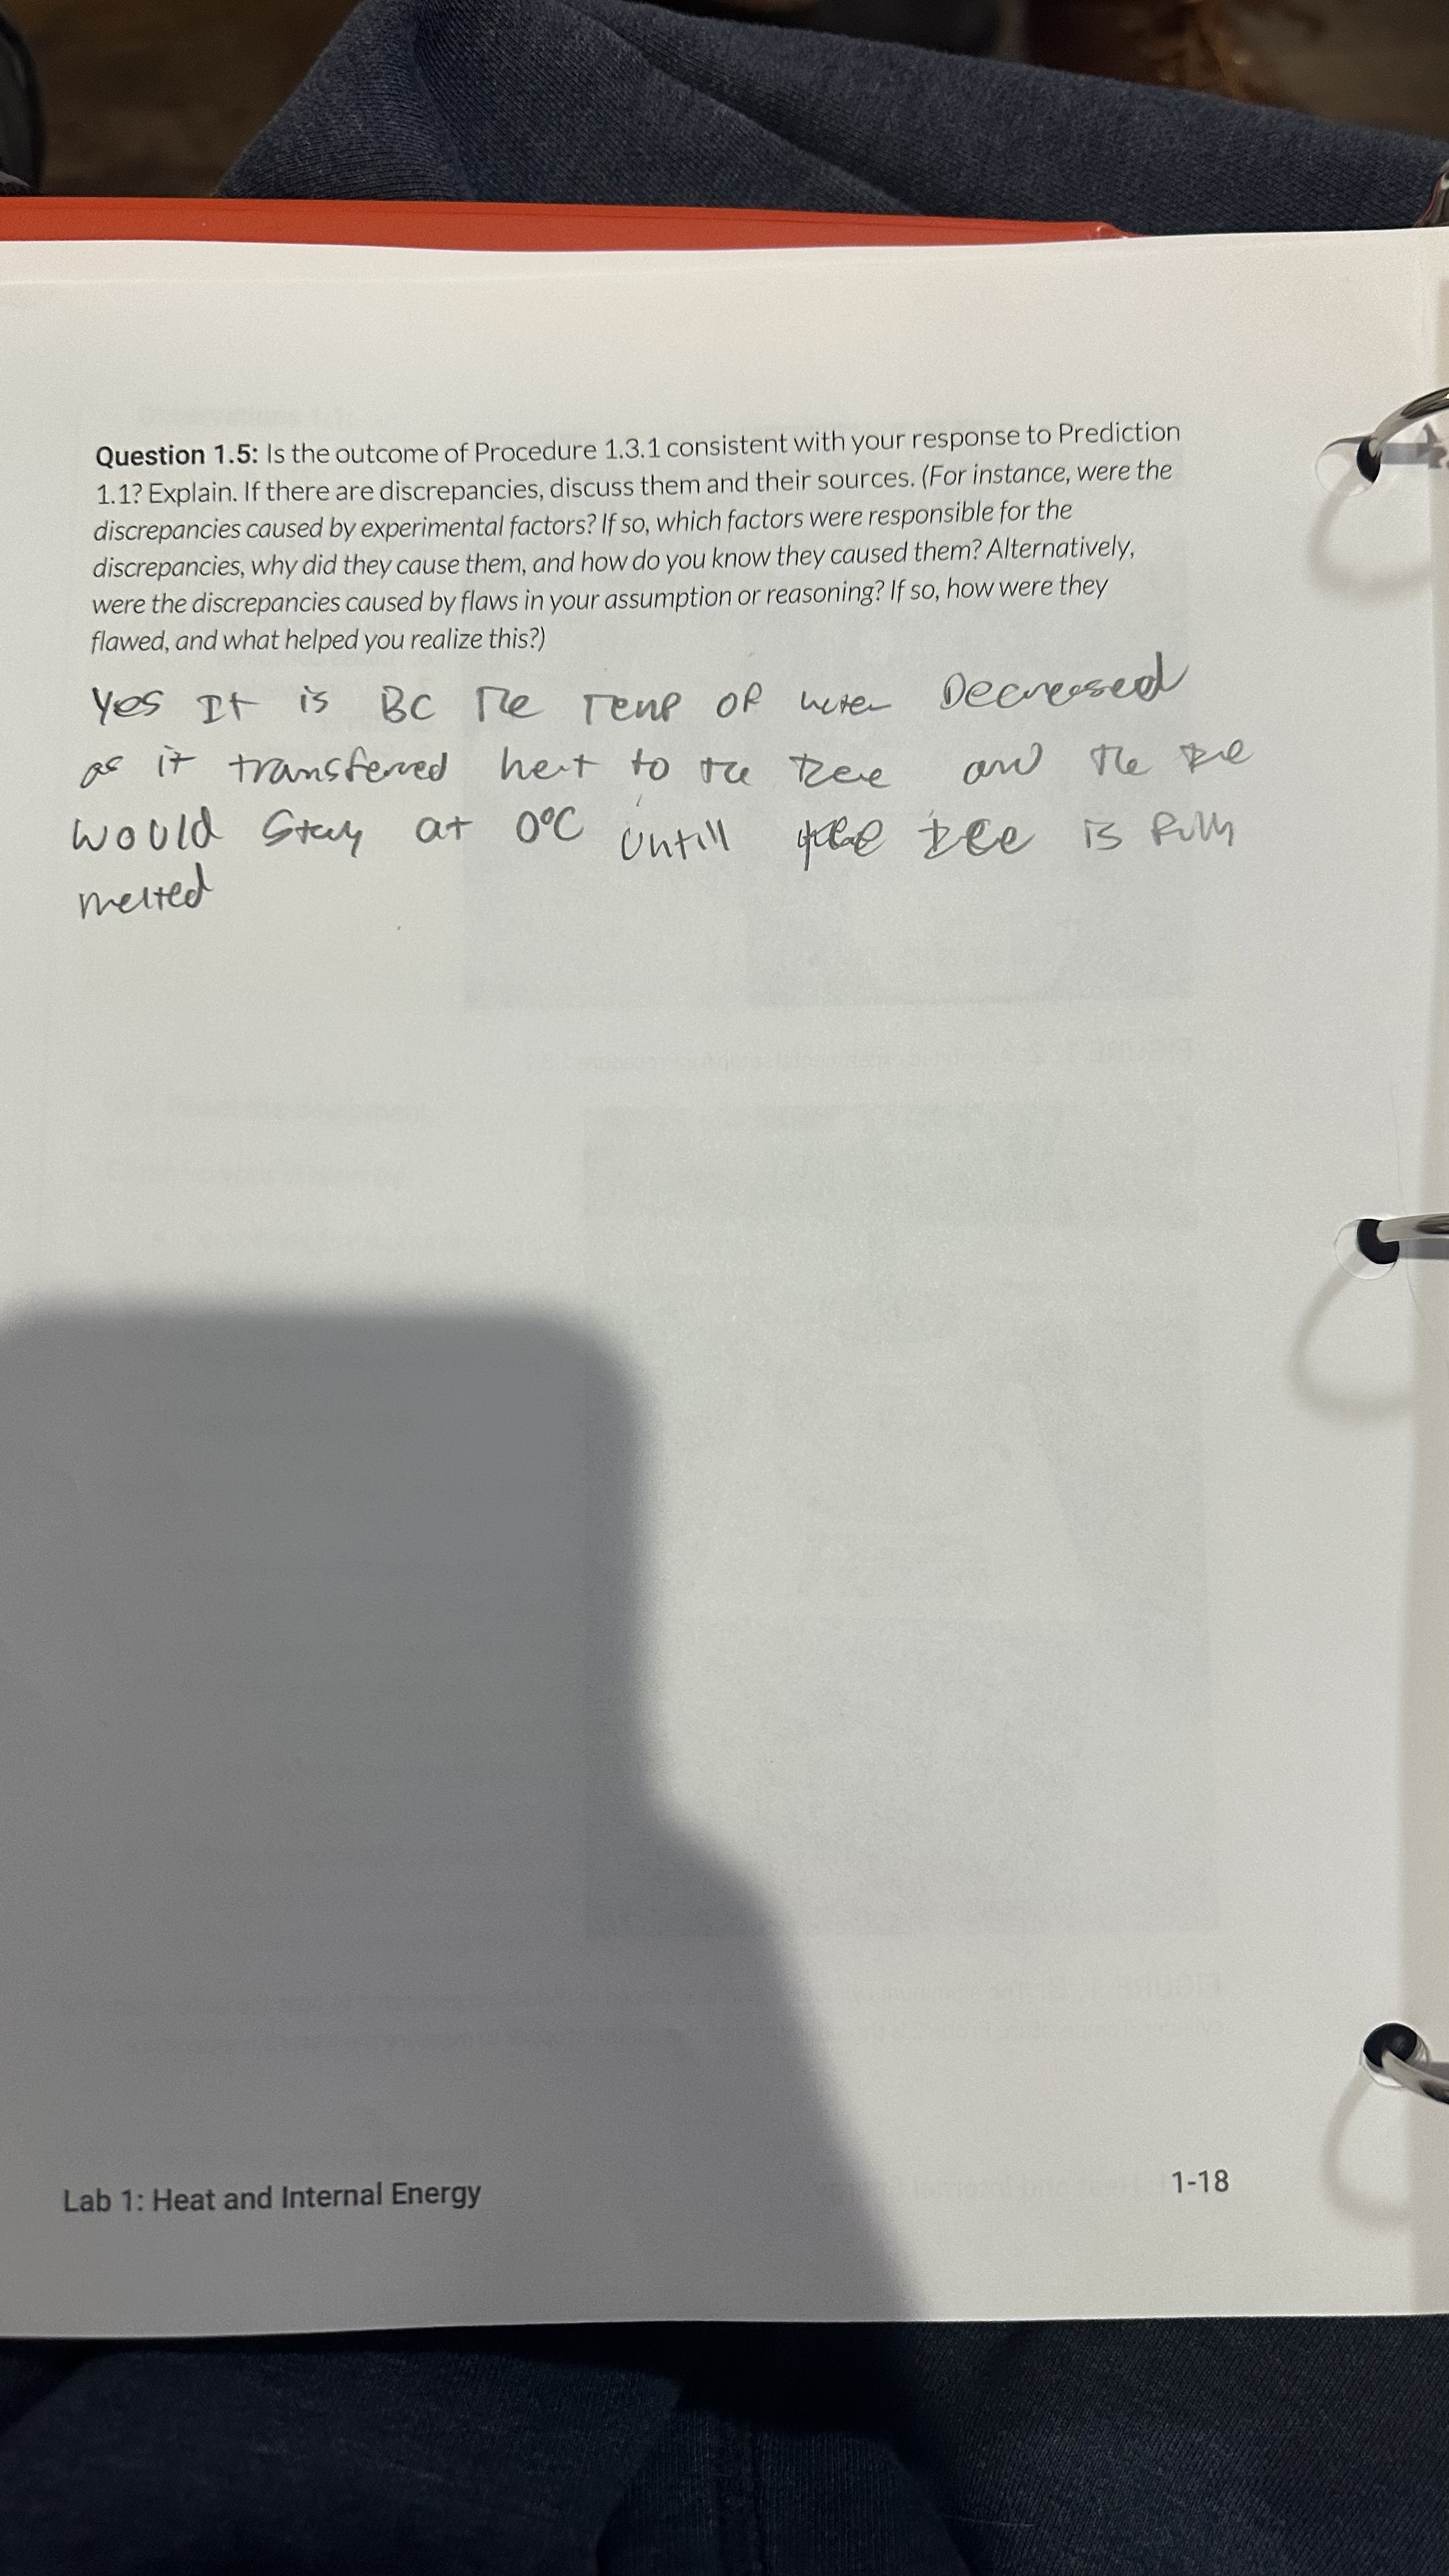 Question 1.5: Is the outcome of Procedure 1.3.1 consistent with your response to Prediction
1.1? Explain. If there are discrepancies, discuss them and their sources. (For instance, were the
discrepancies caused by experimental factors? If so, which factors were responsible for the
discrepancies, why did they cause them, and how do you know they caused them? Alternatively,
were the discrepancies caused by flaws in your assumption or reasoning? If so, how were they
flawed, and what helped you realize this?)
Yes It is BC The Temp OF water Decreased
as it transferred heat to the Ice and The Ice
would Stay at 0°C Untill the Ice is fully
melted
Lab 1: Heat and Internal Energy
1-18